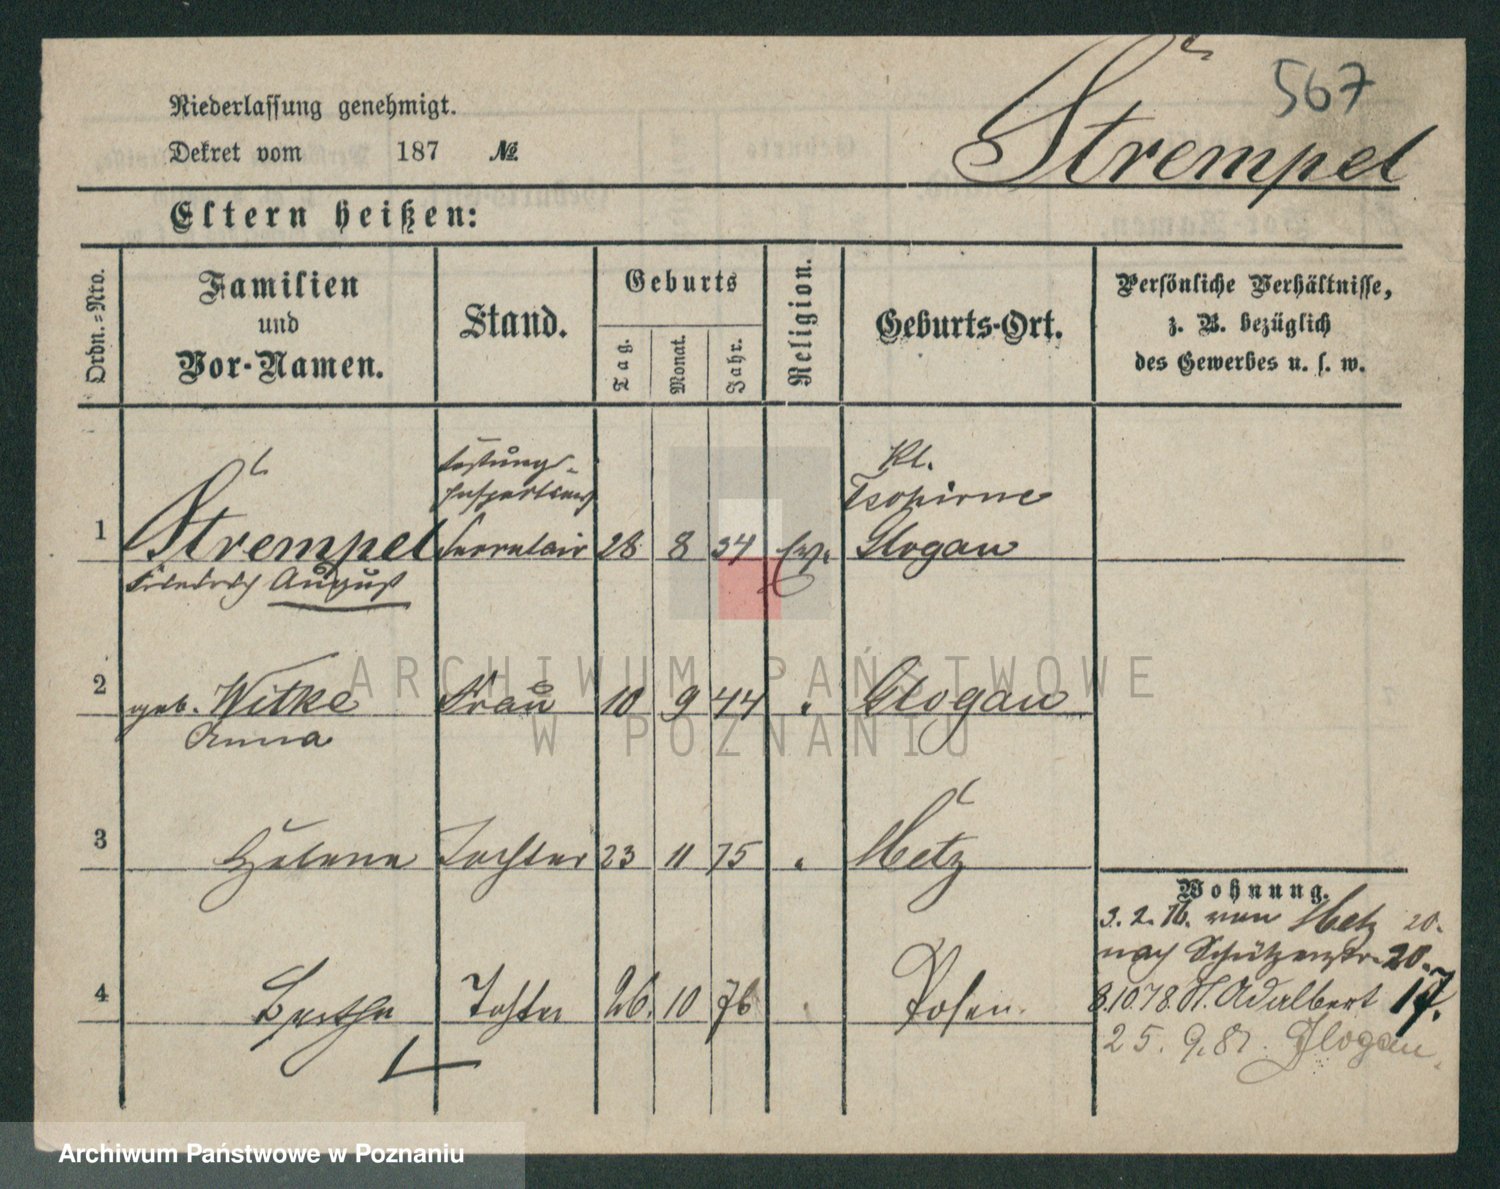 567
Niederlassung genehmigt.
Dekret vom 187 №
Strempel
Eltern heißen:
Ordn.-Nro.
Familien und Vor-Namen.
Stand.
Geburts
Tag.
Monat.
Jahr.
Religion.
Geburts-Ort.
Persönliche Verhältnisse,
z. B. bezüglich
des Gewerbes u. s. w.
Festungs-
Kl.
Inspections
Tschirne
1 Strempel Secretair 28 8 34 Ev. Glogau
Friedrich August
2 geb. Witke Frau 10 9 44 " Glogau
Anna
3 Helene Tochter 23 11 75 " Metz
Wohnung.
3. 2. 76. von Metz 20.
nach Schützenstr. 20.
4 Berthe Tochter 26. 10 76 Posen.
8.10.78. St. Adalbert 17.
25. 9. 81. Glogau.
ARCHIWUM PAŃSTWOWE
W POZNANIU
Archiwum Państwowe w Poznaniu